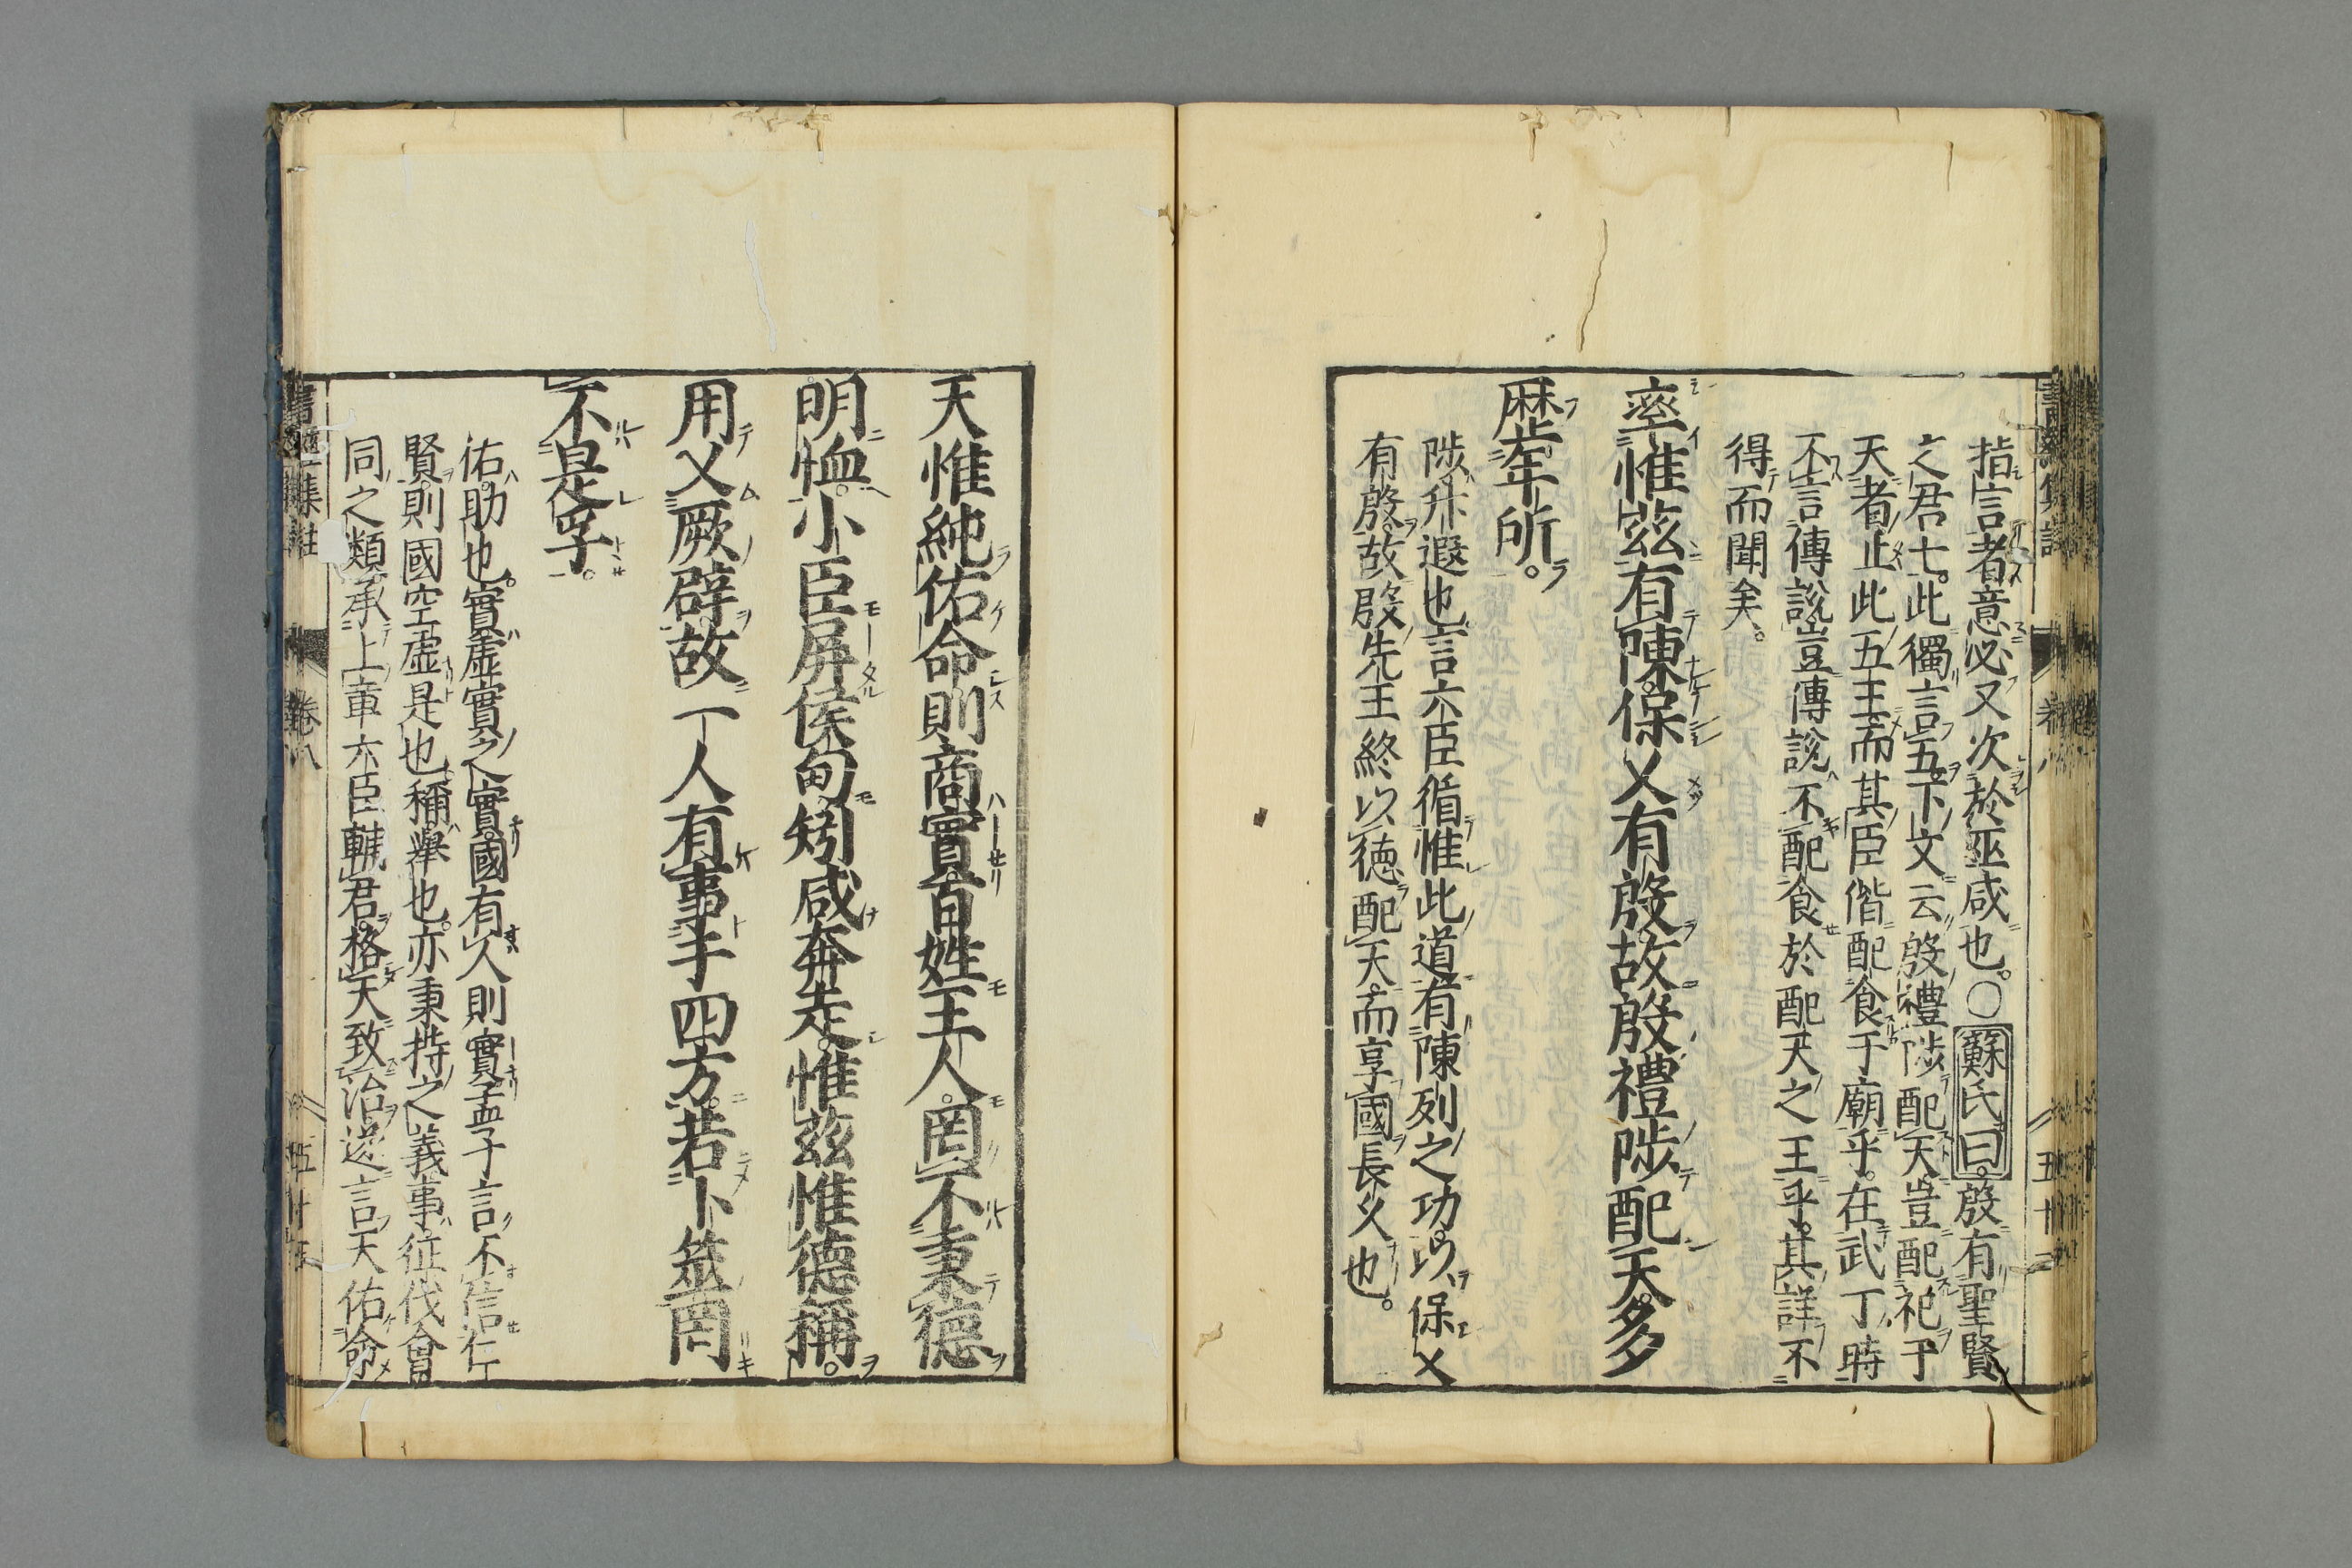 指言者意必又次於巫咸也。〇蘇氏曰。殷有聖賢
之君七。此獨言五。下文云。殷禮陟配天。豈配祀于
天者止此五王。而其臣偕配食于廟乎。在武丁時
不言傅說。豈傅說不配食於配天之王乎。其詳不
得而聞矣。
率惟茲有陳。保乂有殷。故殷禮陟配天。多
歷年所。
陟升遐也。言六臣循惟此道。有陳列之功。以保乂
有殷。故殷先王終以德配天。而享國長久也。
天惟純佑命。則商實百姓王人。罔不秉德
明恤。小臣屏侯甸。矧咸奔走。惟茲惟德稱。
用乂厥辟。故一人有事于四方。若卜筮罔
不是孚。
佑助也。實虛實之實。國有人則實。孟子言不信仁
賢。則國空虛是也。稱舉也。亦秉持之義。事征伐會
同之類。承上章六臣輔君。格天致治。遂言天佑命
書經集註 卷八 五十五